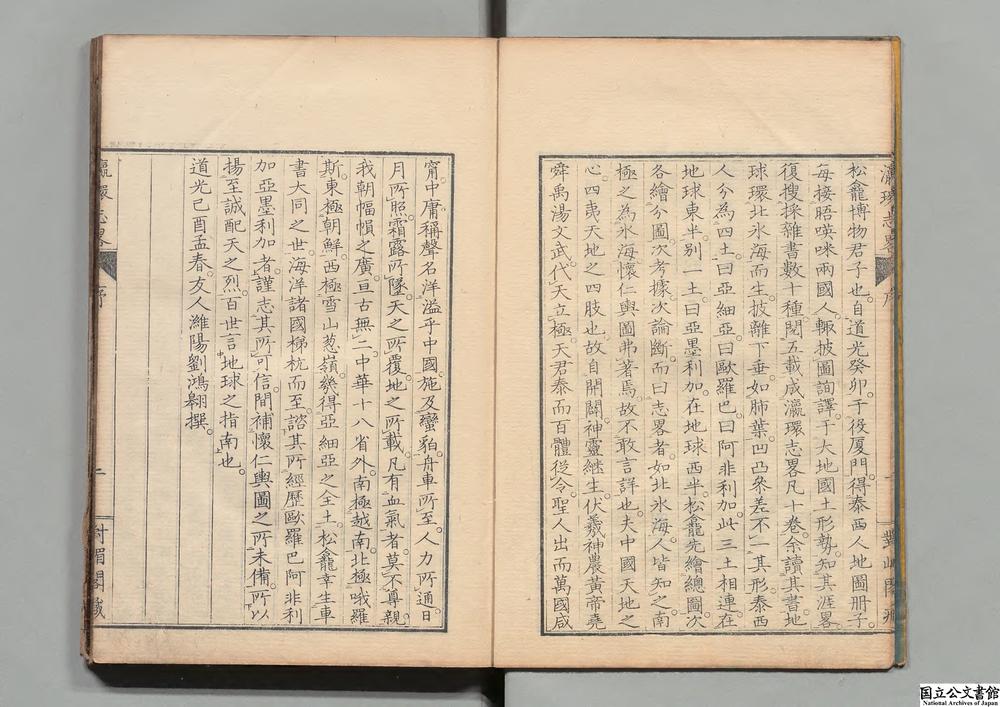 松龕博物君子也。自道光癸卯。于役厦門。得泰西人地圖册子。
每接晤𠸄咪兩國人。輙披圖詢譯。于大地國土形勢。知其涯畧。
復搜採雜書數十種。閱五載成瀛環志畧。凡十卷。余讀其書。地
球環北氷海而生。披離下垂。如肺葉。凹凸參差不一。其形泰西
人分為四土。曰亞細亞。曰歐羅巴。曰阿非利加。此三土相連。在
地球東半。别一土曰亞墨利加。在地球西半。松龕先繪總圖。次
各繪分圖。次考據。次論斷。而曰志畧者。如北氷海。人皆知之。南
極之為氷海。懷仁輿圖弗著焉。故不敢言詳也。夫中國天地之
心。四夷天地之四肢也。故自開闢。神靈継生。伏羲神農黄帝堯
舜禹湯文武。代天立極。天君泰而百體從令。聖人出而萬國咸
甯。中庸稱聲名洋溢乎中國。施及蠻貊。舟車所至。人力所通。日
月所照。霜露所墜。天之所覆。地之所載。凡有血氣者。莫不尊親。
我朝幅幀之廣。亘古無二。中華十八省外。南極越南。北極哦羅
斯。東極朝鮮。西極雪山葱嶺。幾得亞細亞之全土。松龕幸生車
書大同之世。海洋諸國梯杭而至。諮其所經歷歐羅巴阿非利
加亞墨利加者。謹志其所可信。間補懷仁輿圖之所未備。所以
揚至誠配天之烈。百世言地球之指南也。
道光己酉孟春。友人濰陽劉鴻翱撰。
瀛環志畧
序
二
國立公文書館
National Archives of Japan